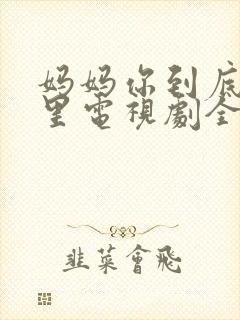 妈妈你到底
里電視劇全
韭菜會飛